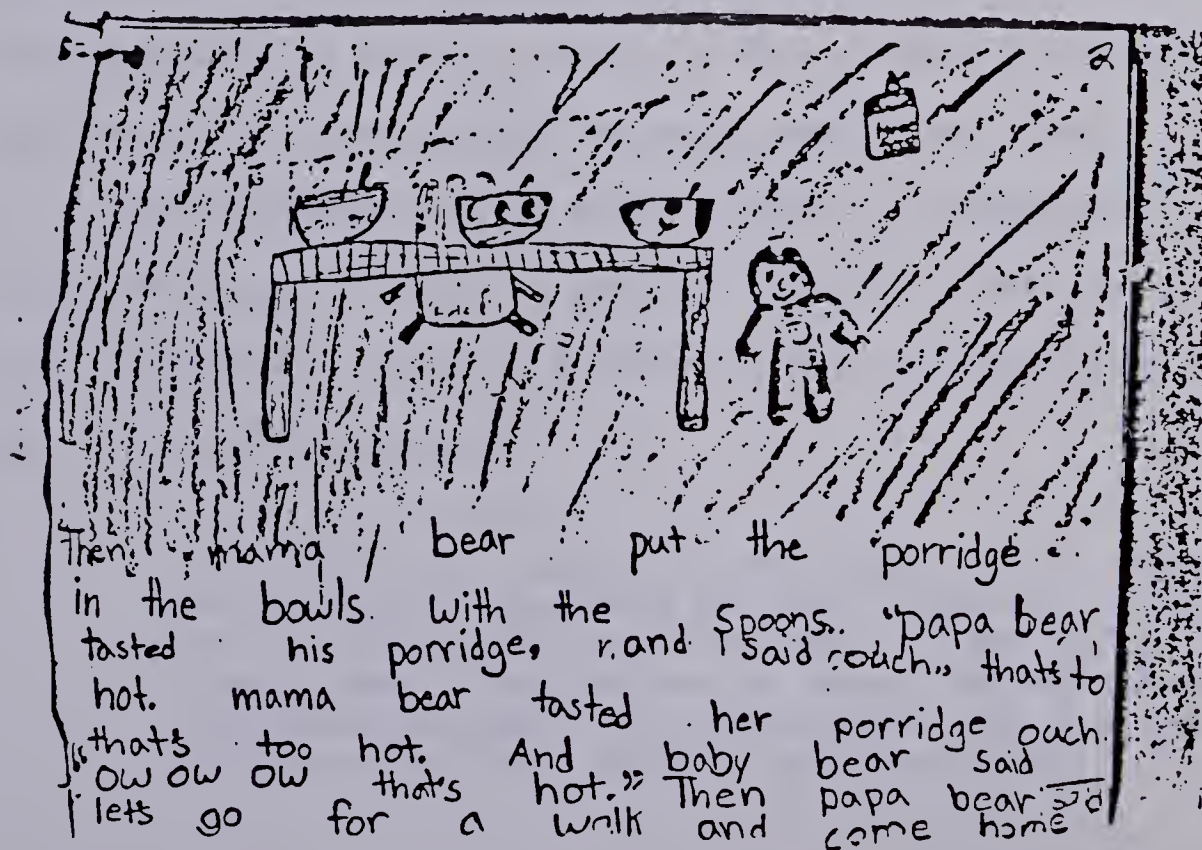 2
Then mama bear put the porridge
in the bowls with the spoons. "papa bear
tasted his porridge, and said ouch" thats to
hot. mama bear tasted her porridge ouch
that's too hot. And baby bear said
"ow ow ow that's hot." Then papa bear
lets go for a walk and come home